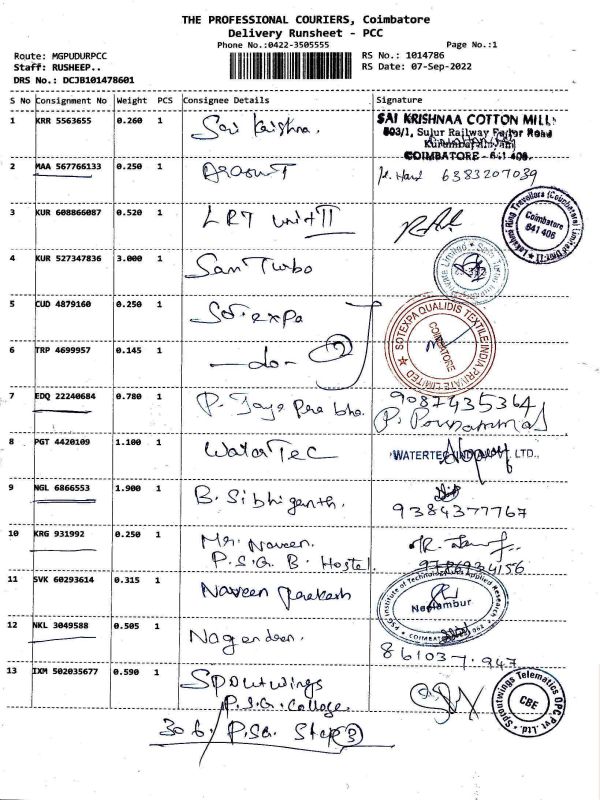 THE PROFESSIONAL COURIERS, Coimbatore
Delivery Runsheet - PCC
Phone No.:0422-3505555 Page No.:1
Route: MGPUDURPCC RS No.: 1014786
Staff: RUSHEEP.. RS Date: 07-Sep-2022
DRS No.: DCJB101478601
S No Consignment No Weight PCS Consignee Details Signature
1 KRR 5563655 0.260 1 Sai Krishna. SAI KRISHNAA COTTON MILL
803/1, Sulur Railway Feeder Road
COIMBATORE - 641 406.
2 MAA 567766133 0.250 1 6383207039
3 KUR 608866087 0.520 1 LRT unit II
Coimbatore
641 406
4 KUR 527347836 3.000 1 San Turbo
5 CUD 4879160 0.250 1 Sotexpa
SOTEXPA QUALIDIS TEXTILE INDIA PRIVATE LIMITED
COIMBATORE
6 TRP 4699957 0.145 1 -do- 2
7 EDQ 22240684 0.780 1 P. Jaya Prabha. 9087435364
8 PGT 4420109 1.100 1 WaterTec WATERTEC LTD.,
9 NGL 6866553 1.900 1 B. Sibhiganth. 9384377767
10 KRG 931992 0.250 1 Mr. Naveen.
P.S.G. B. Hostel.
11 SVK 60293614 0.315 1 Naveen Prakash
PSG Institute of Technology & Applied Research
Neelambur
12 NKL 3049588 0.505 1
13 IXM 502035677 0.590 1 Spoutwings
P.S.G. College.
Sproutwings Telematics OPC Pvt. Ltd.
CBE
P.SG. Step 3